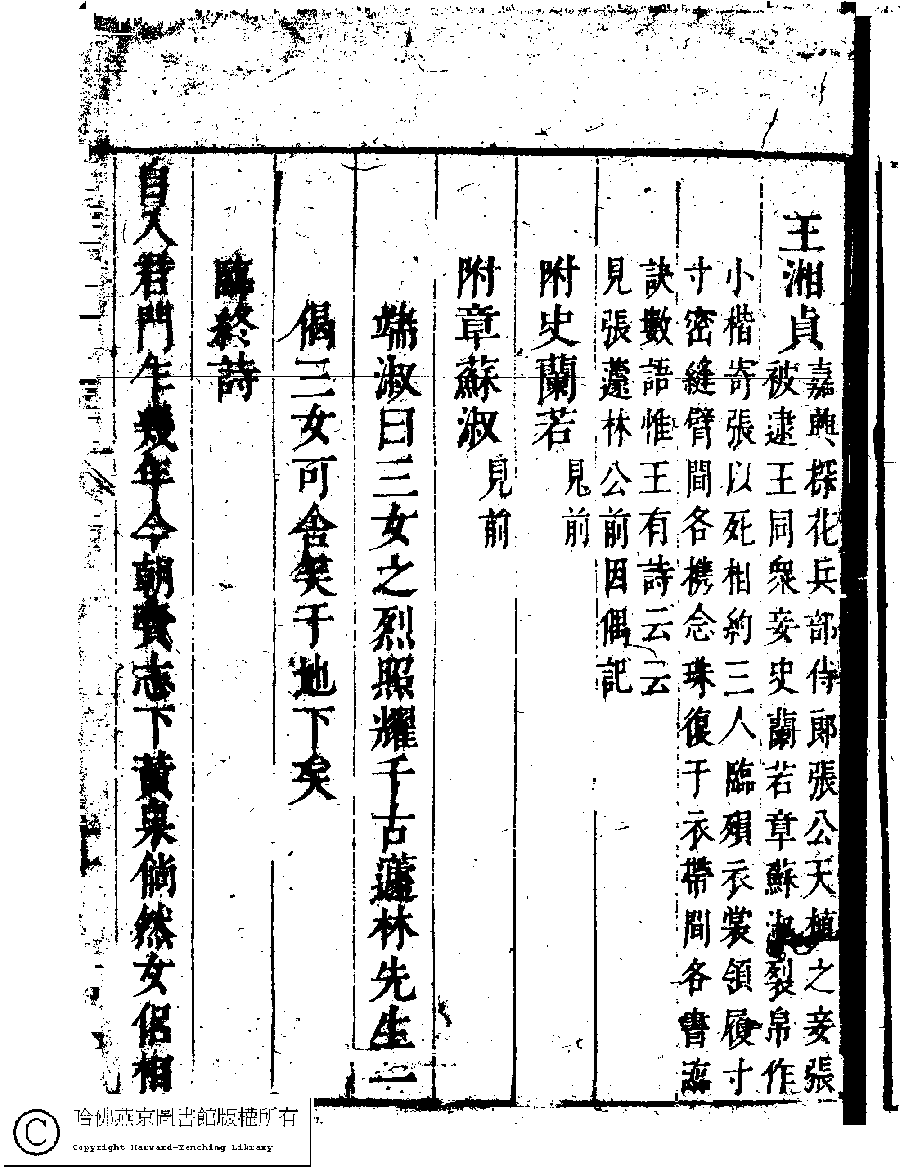 王湘貞
嘉興探花兵部侍郎張公天植之妾張
被逮王同衆妾史蘭若章蘇淑裂帛作
小楷寄張以死相約三人臨殞衣裳領履寸
寸密縫臂間各携念珠復于衣帶間各書
訣數語惟王有詩云云
見張蘧林公前因偶記
附史蘭若見前
附章蘇淑見前
端淑曰三女之烈照耀千古蘧林先生一
偈三女可含笑于地下矣
臨終詩
自入君門年幾年今朝賫志下黃泉倘然女侶相
哈佛燕京圖書館版權所有
Copyright Harvard-Yenching Library